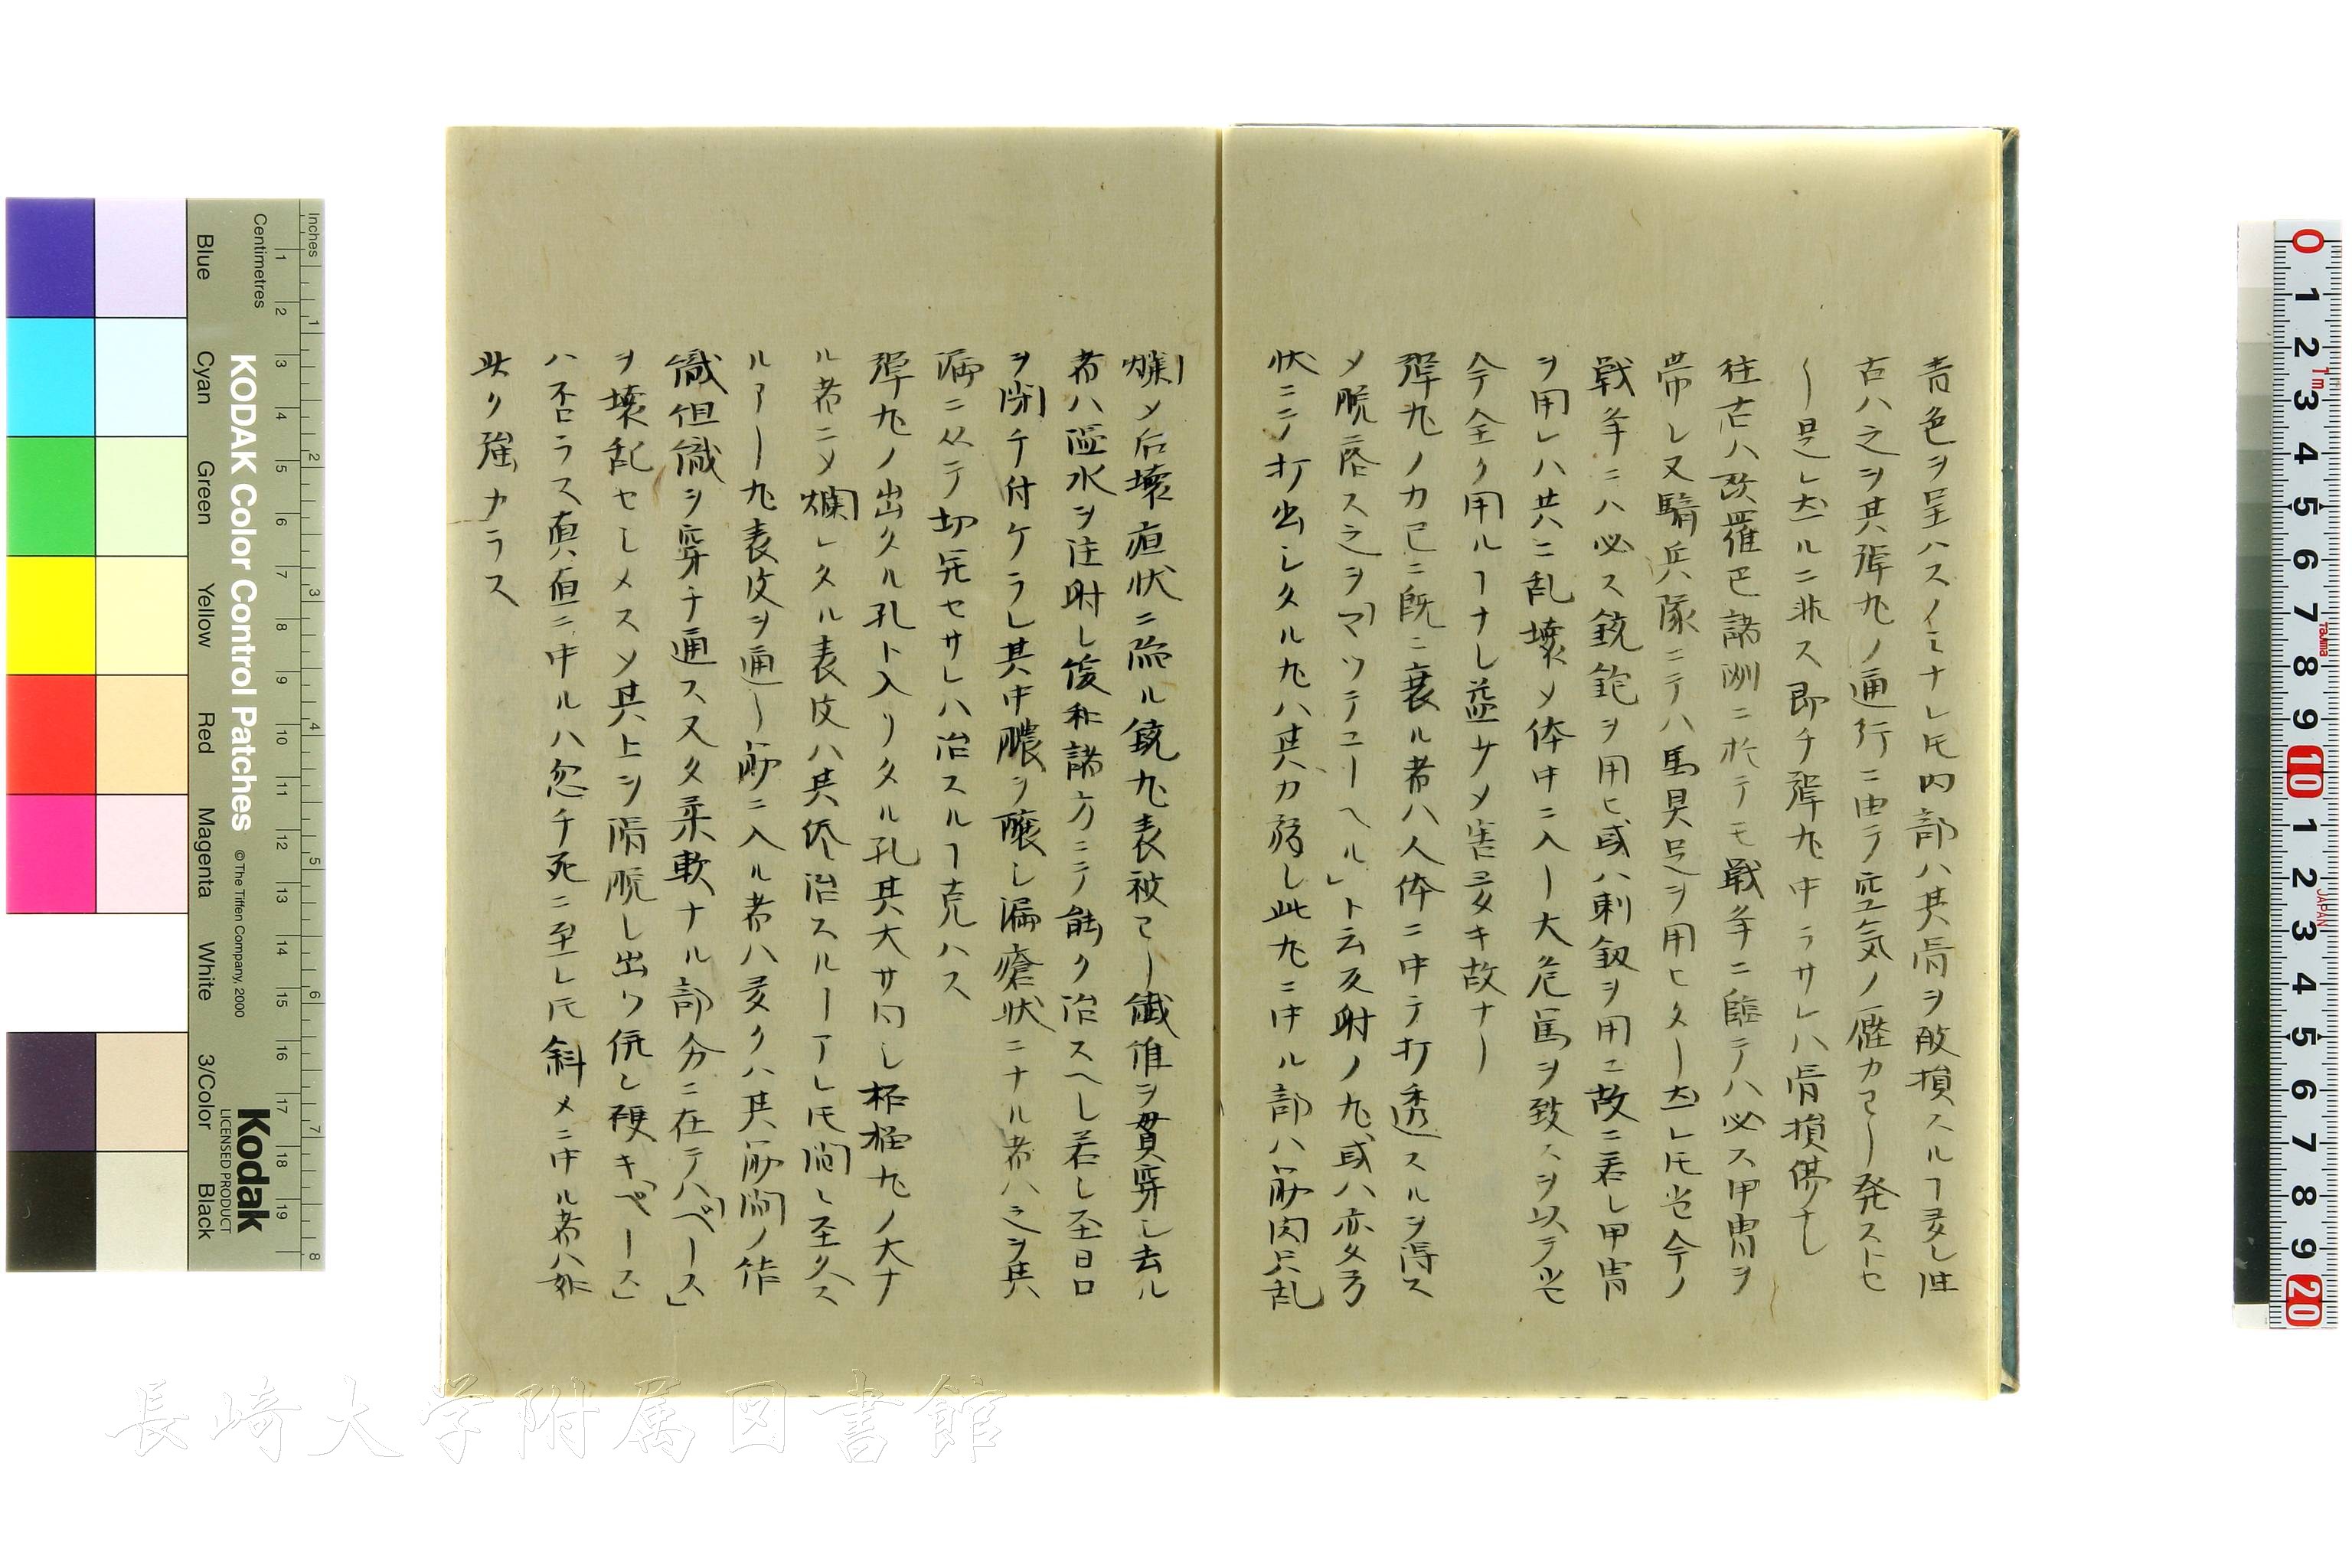 青色ヲ呈ハスノミナレ𪜈内部ハ其傷ヲ敗損スルヿ多シ往
古ハ之ヲ其弾丸ノ通行ニ由テ空気ノ壓力ヨリ発ストセ
リ是レ然ルニ非ス即チ弾丸中ラサレハ傷損傷ナシ
往古ハ欧羅巴諸洲ニ於テモ戦争ニ臨テハ必ス甲冑ヲ
帯シ又騎兵隊ニテハ馬具足ヲ用ヒタリ然レ𪜈当今ノ
戦争ニハ必ス銃鉋ヲ用ヒ或ハ剣ヲ用ユ故ニ若シ甲冑
ヲ用レハ共ニ乱壊〆体中ニ入リ大危篤ヲ致スヲ以テ当
今テ全ク用ルヿナシ益サメ害多キ故ナリ
弾丸ノ力已ニ既ニ衰ル者ハ人体ニ中テ打透スルヲ得ス
〆脱落ス之ヲ「マツテコーヘル」ト云反射ノ丸或ハ亦タ弓
状ニテ打出シタル丸ハ其力弱シ此丸ニ中ル部ハ筋肉只乱
爛〆后壊疽状ニ陥ル銃丸表被ヨリ繊維ヲ貫穿シ去ル
者ハ温水ヲ注射シ緩和諸方ニテ能ク治スヘシ若シ至日口
ヲ閉チ付ケラレ其中膿ヲ醸シ漏瘡状ニナル者ハ之ヲ其
漏ニ从テ切開セサレハ治スルヿ克ハス
弾丸ノ出タル孔ト入リタル孔其大サ同シ極丸ノ大ナ
ル者ニ〆爛レタル表皮ハ其侭治スルヿアレ𪜈間シ至タス
ルヿアリ丸表皮ヲ通リ筋ニ入ル者ハ多クハ其筋間ノ作
織但織ヲ穿チ通ス又タ柔軟ナル部分ニ在テハ「ベース」
ヲ壊乱セシメス〆其上ヲ滑脱シ出ツ併シ硬キ「ベース」
ハ否ラス真直ニ中ルハ忽チ死ニ至レ𪜈斜メニ中ル者ハ如
此ク強カラス
INCHES
Centimetres
Blue
Cyan
Green
Yellow
Red
Magenta
White
3/Color
Black
KODAK Color Control Patches
© The Tiffen Company, 2000
Kodak
LICENSED PRODUCT
長崎大学附属図書館